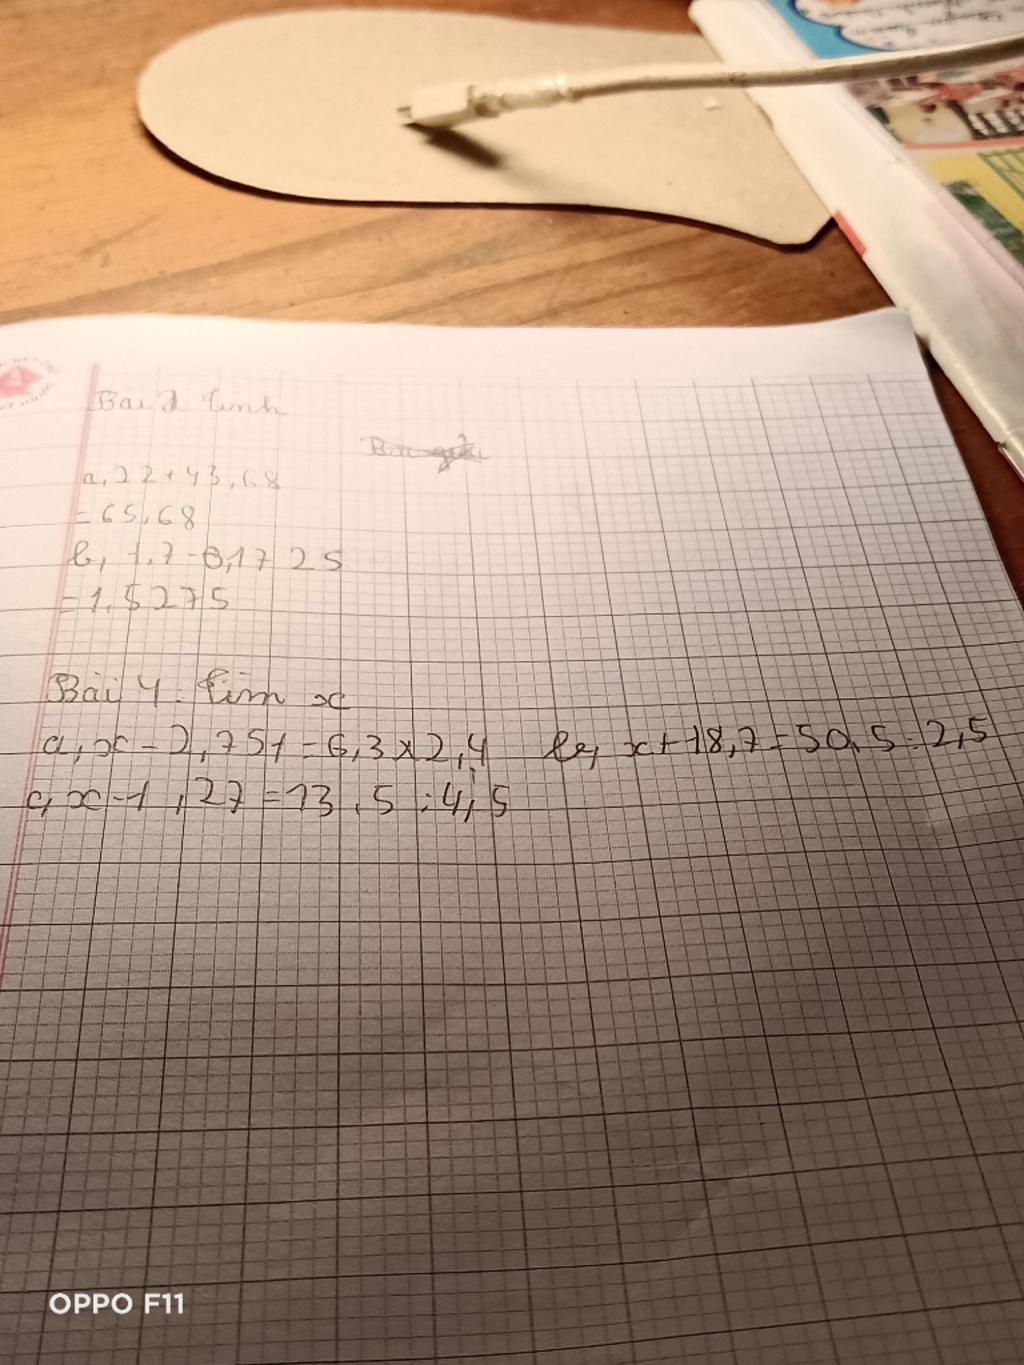 Bài 2 tính
a, 22 + 43,68
= 65,68
b, 1,7 - 0,1725
= 1,5275
Bài 4: tìm x
a, x - 2,751 = 6,3 x 2,4 b, x + 18,7 = 50,5 : 2,5
c, x - 1,27 = 13,5 : 4,5
OPPO F11